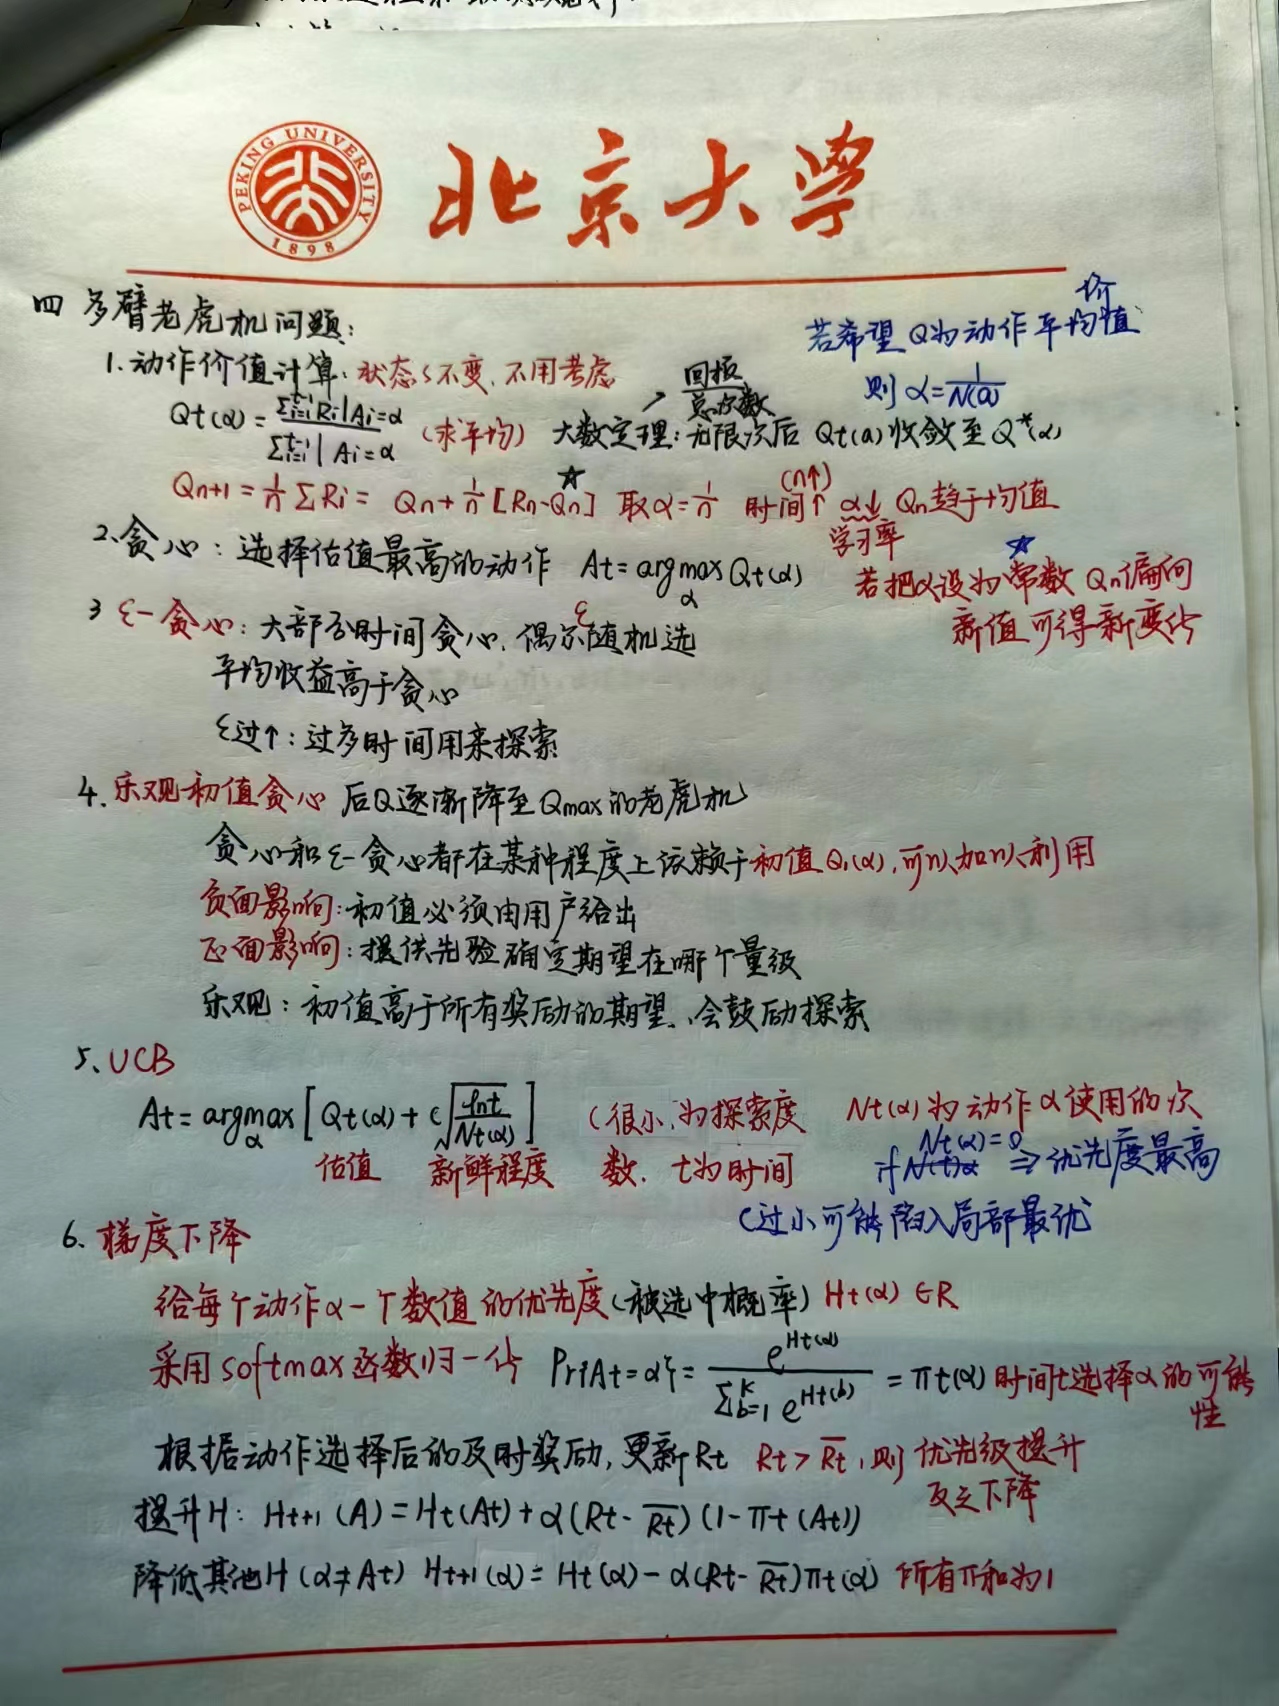 PEKING UNIVERSITY
1898
北京大学
四 多臂老虎机问题:
若希望Q为动作平均价值
则 α=1/N(a)
1.动作价值计算: 状态S不变,不用考虑
Qt(α)=Σ_{i=1}^{t-1} Ri|Ai=α / Σ_{i=1}^{t-1} | Ai=α (求平均) → 回报/总次数
大数定理:无限次后 Qt(a)收敛至Q*(α)
Qn+1 = 1/n ΣRi = Qn + 1/n [Rn-Qn] ☆ 取α=1/n 时间↑(n↑) α↓ Qn趋于均值
学习率
2、贪心:选择估值最高的动作 At=argmax_α Qt(α)
☆
若把α设为常数 Qn偏向
新值 可得新变化
3 ε-贪心:大部分时间贪心,偶尔ε随机选
平均收益高于贪心
ε过↑:过多时间用来探索
4.乐观初值贪心 后Q逐渐降至Qmax的老虎机
贪心和ε-贪心都在某种程度上依赖于初值Q1(α),可以加以利用
负面影响:初值必须由用户给出
正面影响:提供先验确定期望在哪个量级
乐观:初值高于所有奖励的期望,会鼓励探索
5、UCB
At=argmax_α [Qt(α)+c√(lnt/Nt(α))] c很小,为探索度 Nt(α)为动作α使用的次
估值 新鲜程度 数. t为时间
Nt(α)=0
if N(t)α ⇒优先度最高
c过小可能陷入局部最优
6、梯度下降
给每个动作α一个数值的优先度(被选中概率) Ht(α)∈R
采用softmax函数归一化 Pr{At=α}= e^{Ht(α)} / Σ_{b=1}^{K} e^{Ht(b)} = πt(α) 时间t选择α的可能
性
根据动作选择后的及时奖励,更新Rt Rt>R̄t,则优先级提升
反之下降
提升H: Ht+1(A)=Ht(At)+α(Rt-R̄t)(1-πt(At))
降低其他H (α≠At) Ht+1(α)=Ht(α)-α(Rt-R̄t)πt(α) 所有π和为1